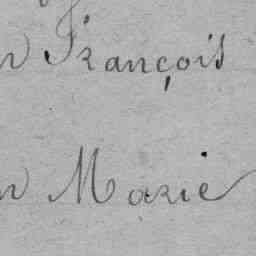 François
Marie